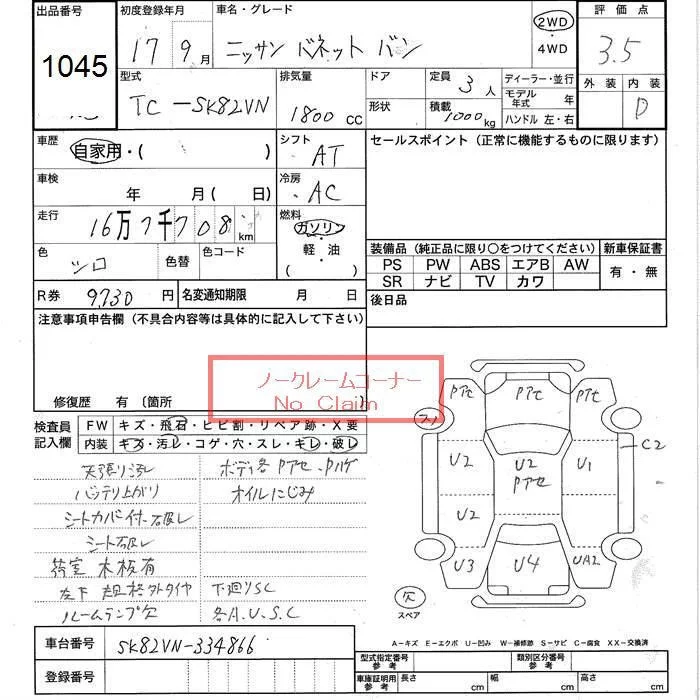 出品番号
1045
初度登録年月
17 9月
車名・グレード
ニッサン バネット バン
2WD
・
4WD
評価点
3.5
外装 内装
D
型式
TC-SK82VN
排気量
1800 CC
ドア
形状
定員 3 人
積載 1000 kg
ディーラー・並行
モデル年式 年
ハンドル 左・右
車歴
自家用・( )
シフト
AT
セールスポイント (正常に機能するものに限ります)
車検
年 月( 日)
冷房
AC
走行
16万7千708 km
燃料
ガソリン
・
軽・油
( )
色
シロ
色替
色コード
装備品 (純正品に限り○をつけてください)
新車保証書
PS PW ABS エアB AW
有・無
SR ナビ TV カワ
R券 9,730 円
名変通知期限 月 日
後日品
注意事項申告欄 (不具合内容等は具体的に記入して下さい)
ノークレームコーナー
No Claim
修復歴 有 (箇所 )
検査員記入欄
FW キズ・飛石・ヒビ割・リペア跡・X要
内装 キズ・汚レ・コゲ・穴・スレ・キレ・破レ
天張り汚レ
ボディ各Pアセ・Pハゲ
バッテリ上がり
オイルにじみ
シートカバー付・破レ
シート破レ
荷室 木板有
左下 規格外タイヤ
下廻りSC
ルームランプ欠
各A.U.S.C
Pアセ
Pアセ
Pアセ
スリ
C2
U2
U2
Pアセ
U1
U2
U3
U4
UA2
欠
スペア
A－キズ E－エクボ U－凹み W－補修跡 S－サビ C－腐食 XX－交換済
車台番号 SK82VN-334866
登録番号
型式指定番号
参考
類別区分番号
参考
車庫証明用
参考
長さ cm
幅 cm
高さ cm